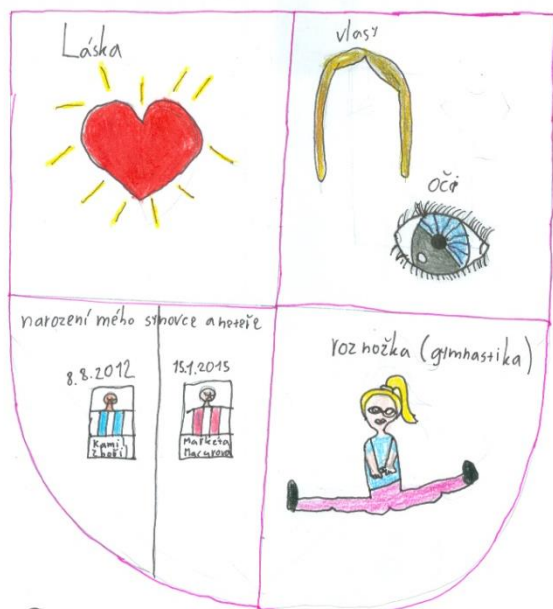 Láska
vlasy
oči
narození mého synovce a neteře
8.8.2012
15.1.2015
Kamil
Zbořil
Markéta
Macurová
roznožka (gymnastika)